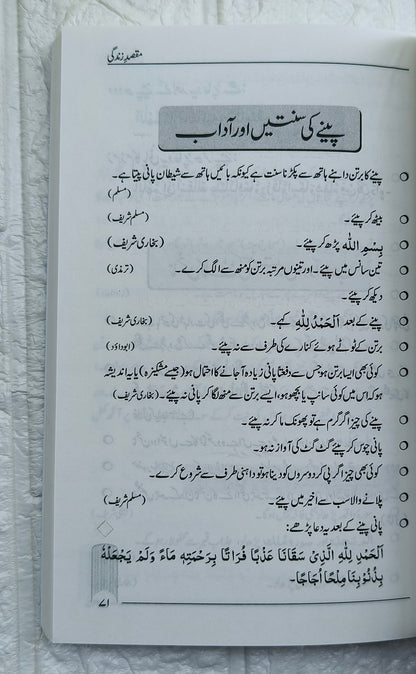 مقصدِ زندگی
پینے کی سنتیں اور آداب
پینے کا برتن داہنے ہاتھ سے پکڑنا سنت ہے کیونکہ بائیں ہاتھ سے شیطان پانی پیتا ہے۔
(مسلم)
بیٹھ کر پیئے۔ (مسلم شریف)
بِسْمِ اللّٰه پڑھ کر پیئے۔ (بخاری شریف)
تین سانس میں پیئے۔ اور تینوں مرتبہ برتن کو منھ سے الگ کرے۔ (ترمذی)
دیکھ کر پیئے۔
پینے کے بعد اَلْحَمْدُ لِلّٰهِ کہے۔ (بخاری شریف)
برتن کے ٹوٹے ہوئے کنارے کی طرف سے نہ پیئے۔ (ابوداؤد)
کوئی بھی ایسا برتن ہو جس سے دفعتاً پانی زیادہ آجانے کا احتمال ہو (جیسے مشکیزہ) یا یہ اندیشہ
ہو کہ اس میں کوئی سانپ یا بچھو ہو، ایسے برتن سے منھ لگا کر پانی نہ پیئے۔ (بخاری شریف)
پینے کی چیز اگر گرم ہے تو پھونک مار کر نہ پیئے۔
پانی چوس کر پیئے گٹ گٹ کی آواز نہ ہو۔
کوئی بھی چیز اگر پی کر دوسروں کو دینا ہو تو داہنی طرف سے شروع کرے۔
پلانے والا سب سے اخیر میں پیئے۔ (مسلم شریف)
پانی پینے کے بعد یہ دعا پڑھے:
اَلْحَمْدِ لِلّٰهِ الَّذِىْ سَقَانَا عَذْبًا فُرَاتًا بِرَحْمَتِهٖ مَاءً وَلَمْ يَجْعَلْهُ
بِذُنُوْبِنَا مِلْحًا اُجَاجًا۔
۷۱